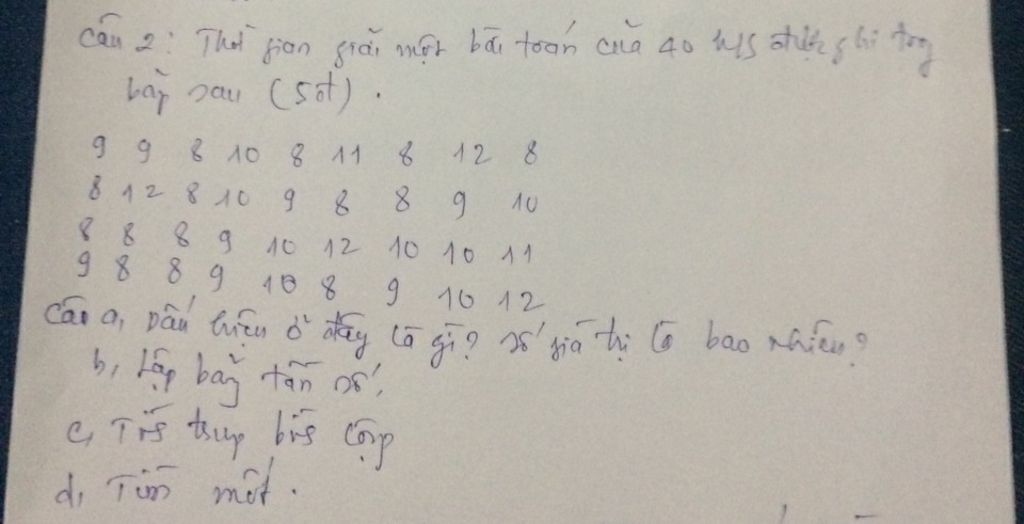 Câu 2: Thời gian giải một bài toán của 40 h/s được ghi trong
bảng sau (5 ôt).
9 9 8 10 8 11 8 12 8
8 12 8 10 9 8 8 9 10
8 8 8 9 10 12 10 10 11
9 8 8 9 10 8 9 10 12
Câu a, Dấu hiệu ở đây là gì? số giá trị là bao nhiêu?
b, Lập bảng tần số,
c, Tính trung bình cộng
d, Tìm mốt.